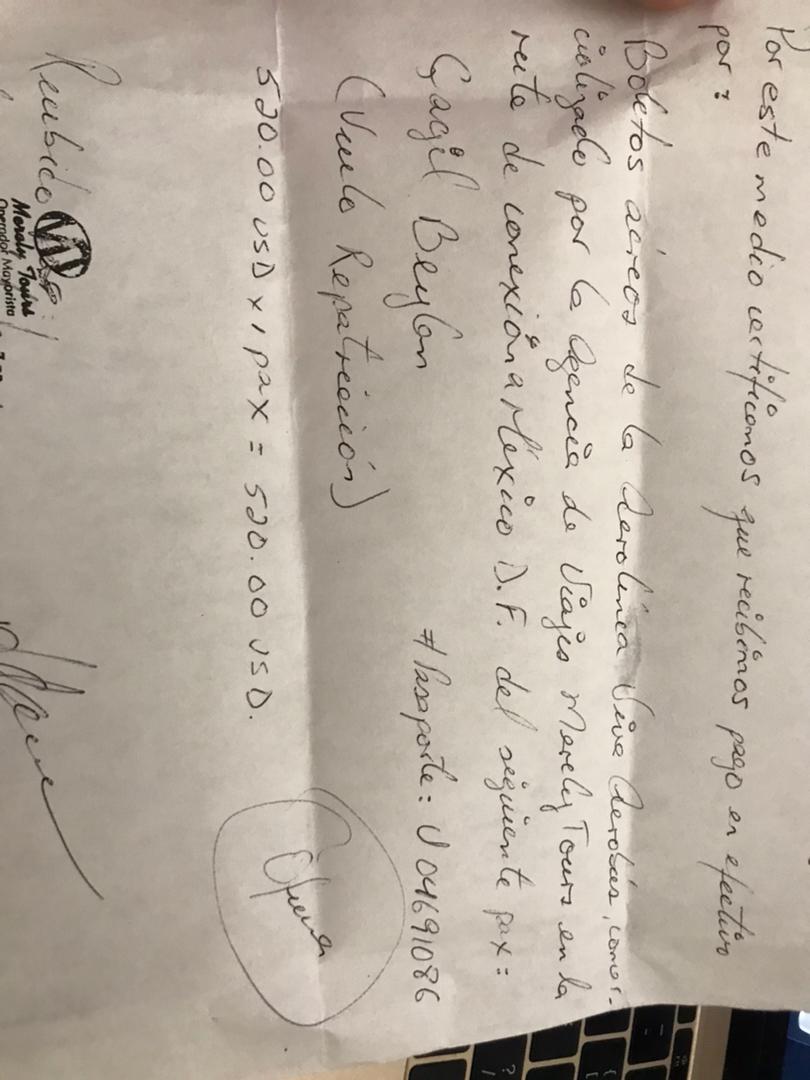 Por este medio certificamos que recibimos pago en efectivo
por:
Boletos aéreos de la Aerolínea Viva Aerobús, comer-
cializado por la Agencia de Viajes Merely Tours en la
ruta de conexión a México D.F. del siguiente pax:
Gagil Beylan #Pasaporte: U04691086
(Vuelo Repatriación)
520.00 USD x 1 pax = 520.00 USD.
Recibido
Merely Tours
Operador Mayorista